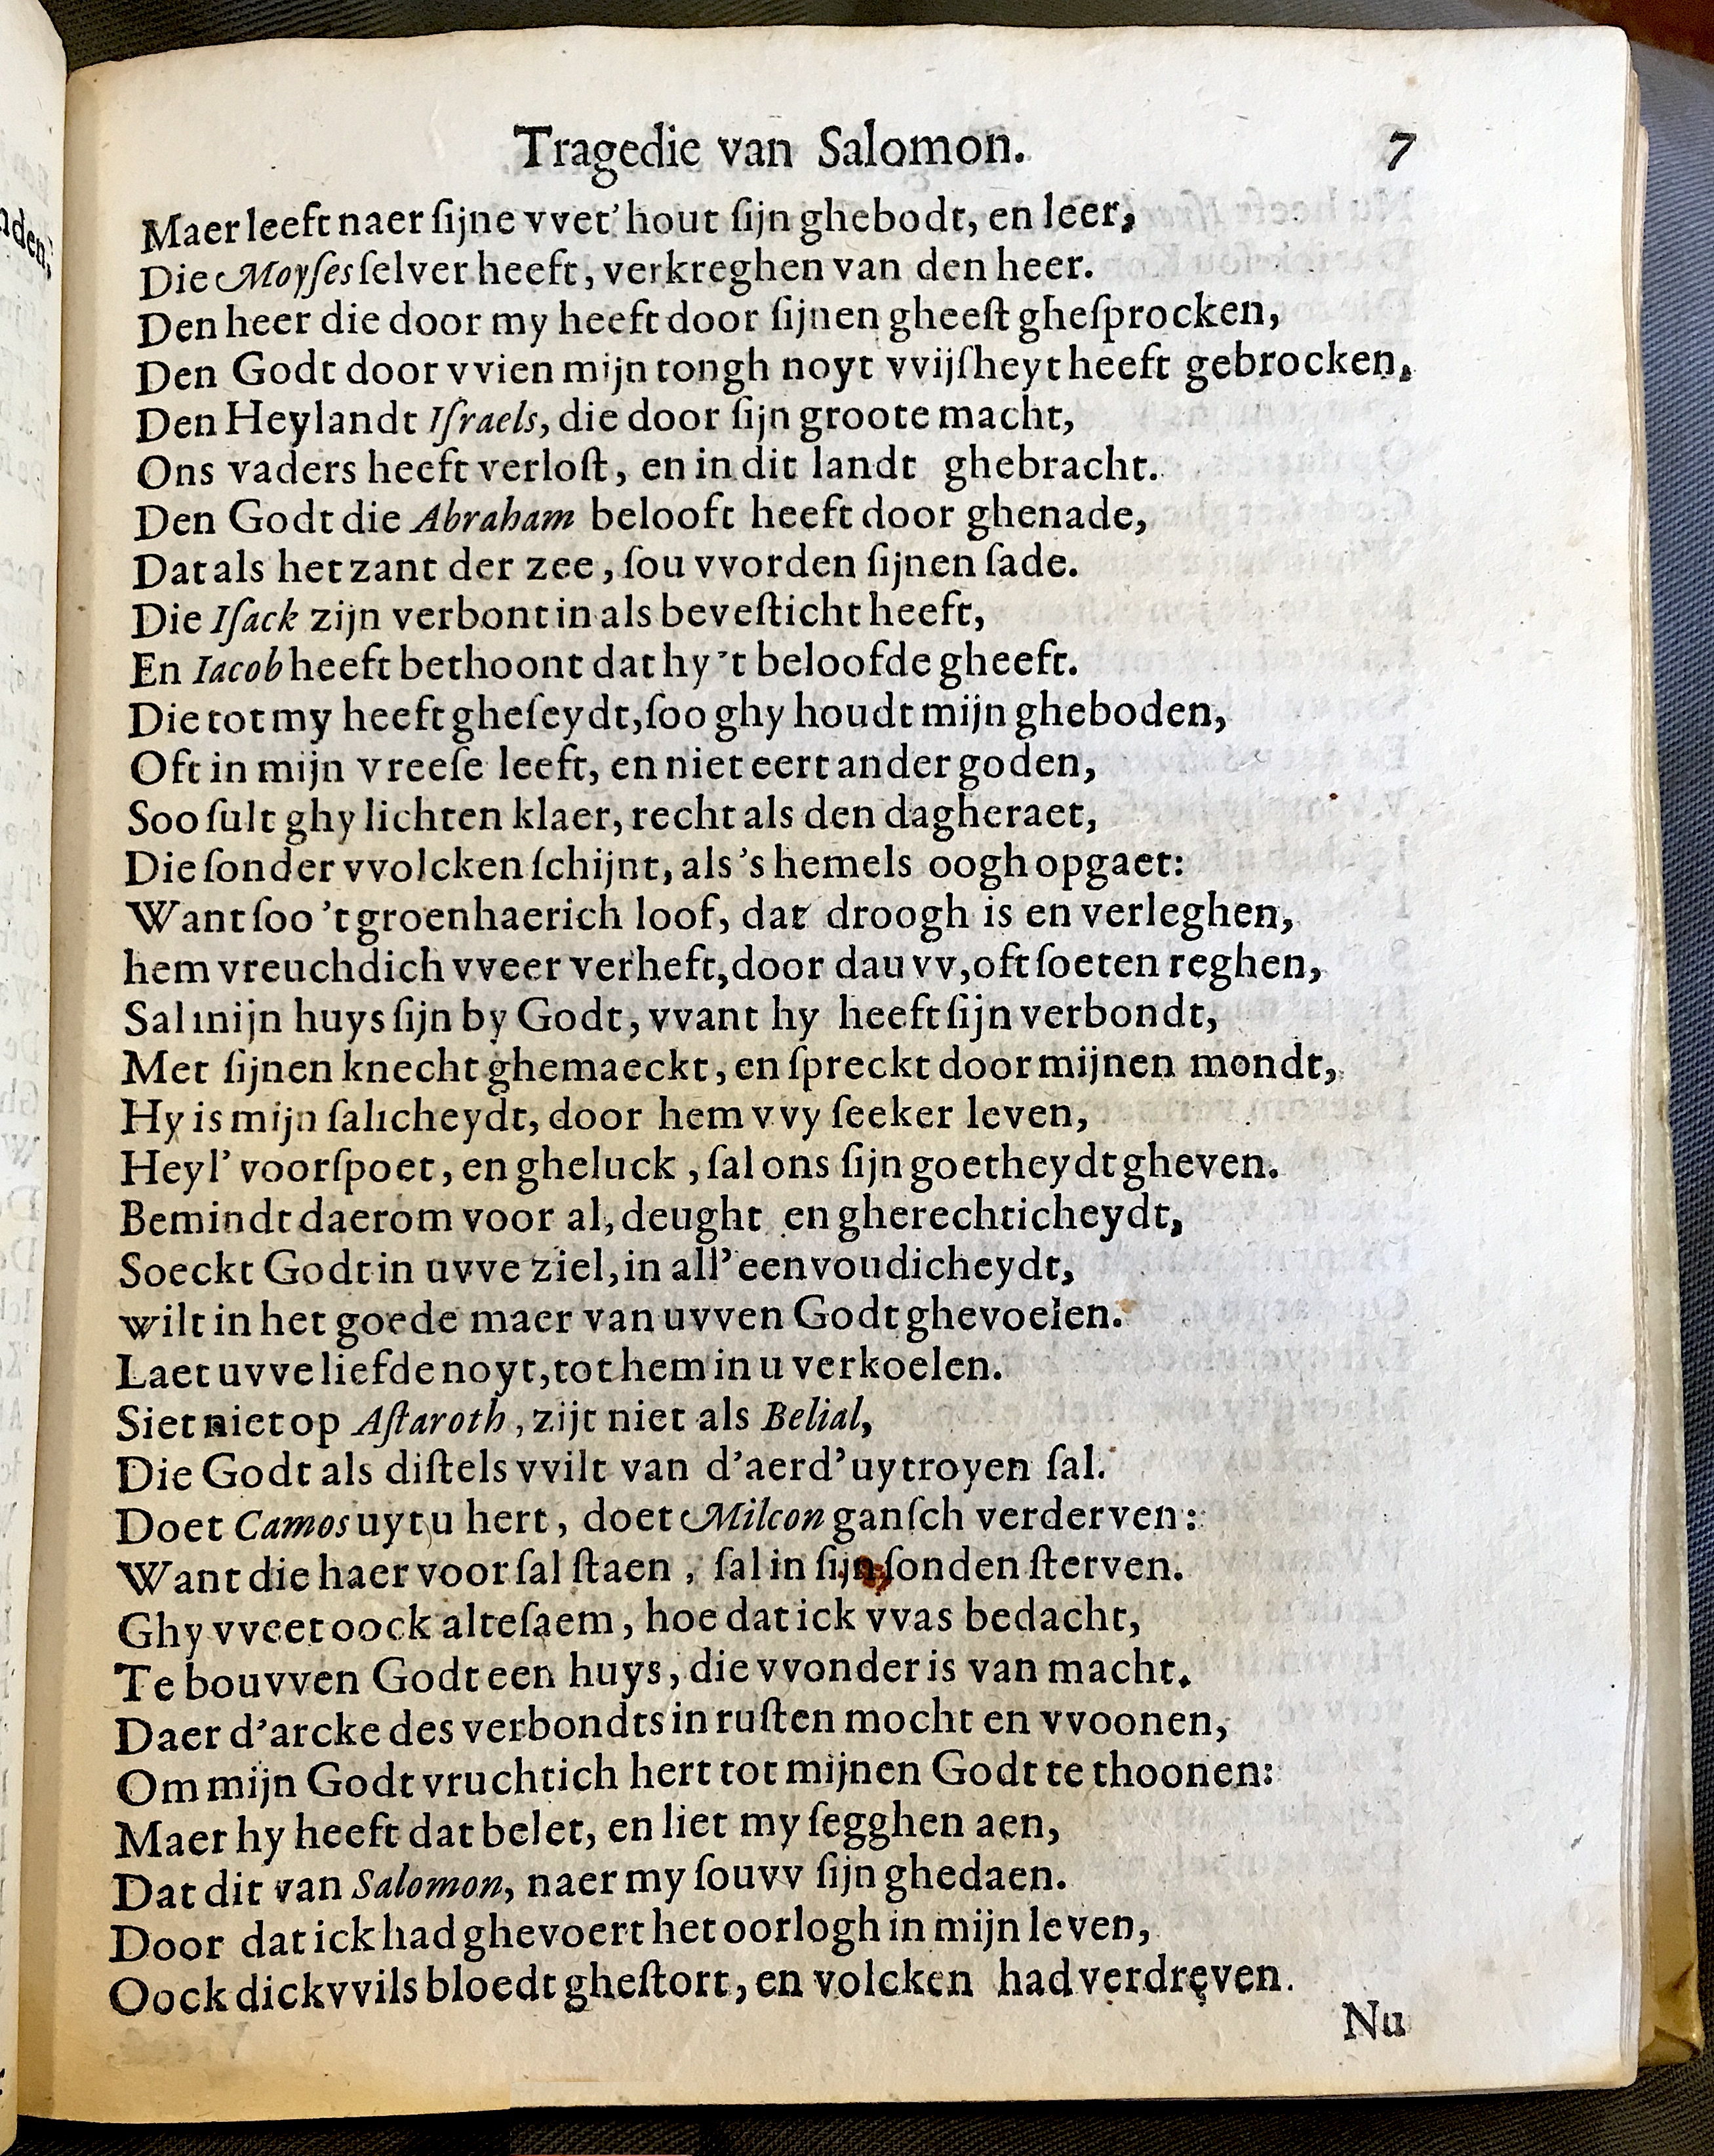 Tragedie van Salomon. 7
Maer leeft naer ſijne vvet' hout ſijn ghebodt, en leer,
Die Moyſes ſelver heeft, verkreghen van den heer.
Den heer die door my heeft door ſijnen gheeſt gheſprocken,
Den Godt door vvien mijn tongh noyt vvijſheyt heeft gebrocken,
Den Heylandt Iſraels, die door ſijn groote macht,
Ons vaders heeft verloſt, en in dit landt ghebracht.
Den Godt die Abraham belooft heeft door ghenade,
Dat als het zant der zee, ſou vvorden ſijnen ſade.
Die Iſack zijn verbont in als beveſticht heeft,
En Iacob heeft bethoont dat hy 't beloofde gheeft.
Die tot my heeft gheſeydt, ſoo ghy houdt mijn gheboden,
Oft in mijn vreeſe leeft, en niet eert ander goden,
Soo ſult ghy lichten klaer, recht als den dagheraet,
Die ſonder vvolcken ſchijnt, als 's hemels oogh opgaet:
Want ſoo 't groenhaerich loof, dat droogh is en verleghen,
hem vreuchdich vveer verheft, door dauvv, oft ſoeten reghen,
Sal mijn huys ſijn by Godt, vvant hy heeft ſijn verbondt,
Met ſijnen knecht ghemaeckt, en ſpreckt door mijnen mondt,
Hy is mijn ſalicheydt, door hem vvy ſeeker leven,
Heyl' voorſpoet, en gheluck, ſal ons ſijn goetheydt gheven.
Bemindt daerom voor al, deught en gherechticheydt,
Soeckt Godt in uvve ziel, in all' eenvoudicheydt,
wilt in het goede maer van uvven Godt ghevoelen.
Laet uvve liefde noyt, tot hem in u verkoelen.
Siet niet op Aſtaroth, zijt niet als Belial,
Die Godt als diſtels vvilt van d'aerd' uytroyen ſal.
Doet Camos uyt u hert, doet Milcon ganſch verderven:
Want die haer voor ſal ſtaen, ſal in ſijn ſonden ſterven.
Ghy vveet oock alteſaem, hoe dat ick vvas bedacht,
Te bouvven Godt een huys, die vvonder is van macht.
Daer d'arcke des verbondts in ruſten mocht en vvoonen,
Om mijn Godt vruchtich hert tot mijnen Godt te thoonen:
Maer hy heeft dat belet, en liet my ſegghen aen,
Dat dit van Salomon, naer my ſouvv ſijn ghedaen.
Door dat ick had ghevoert het oorlogh in mijn leven,
Oock dickvvils bloedt gheſtort, en volcken had verdreven.
Nu